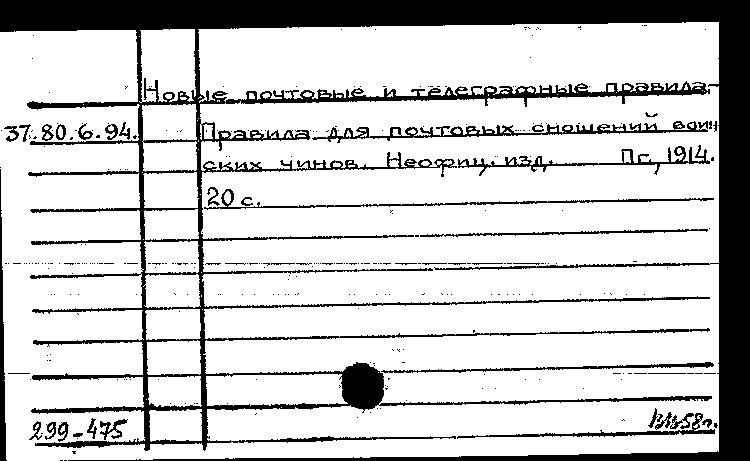 Новые почтовые и телеграфные правила.
37.80.6.94. Правила для почтовых сношений воин-
ских чинов. Неофиц. изд. Пг., 1914.
20 с.
299-475